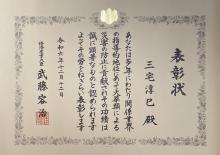 表彰状
三宅淳巳 殿
あなたは多年にわたり関係業界
の指導的地位にあって火薬類による
災害の防止に貢献されその功績は
誠に顕著なものと認められます
よってその労をねぎらい表彰します
令和六年十二月十二日
経済産業大臣 武藤容治